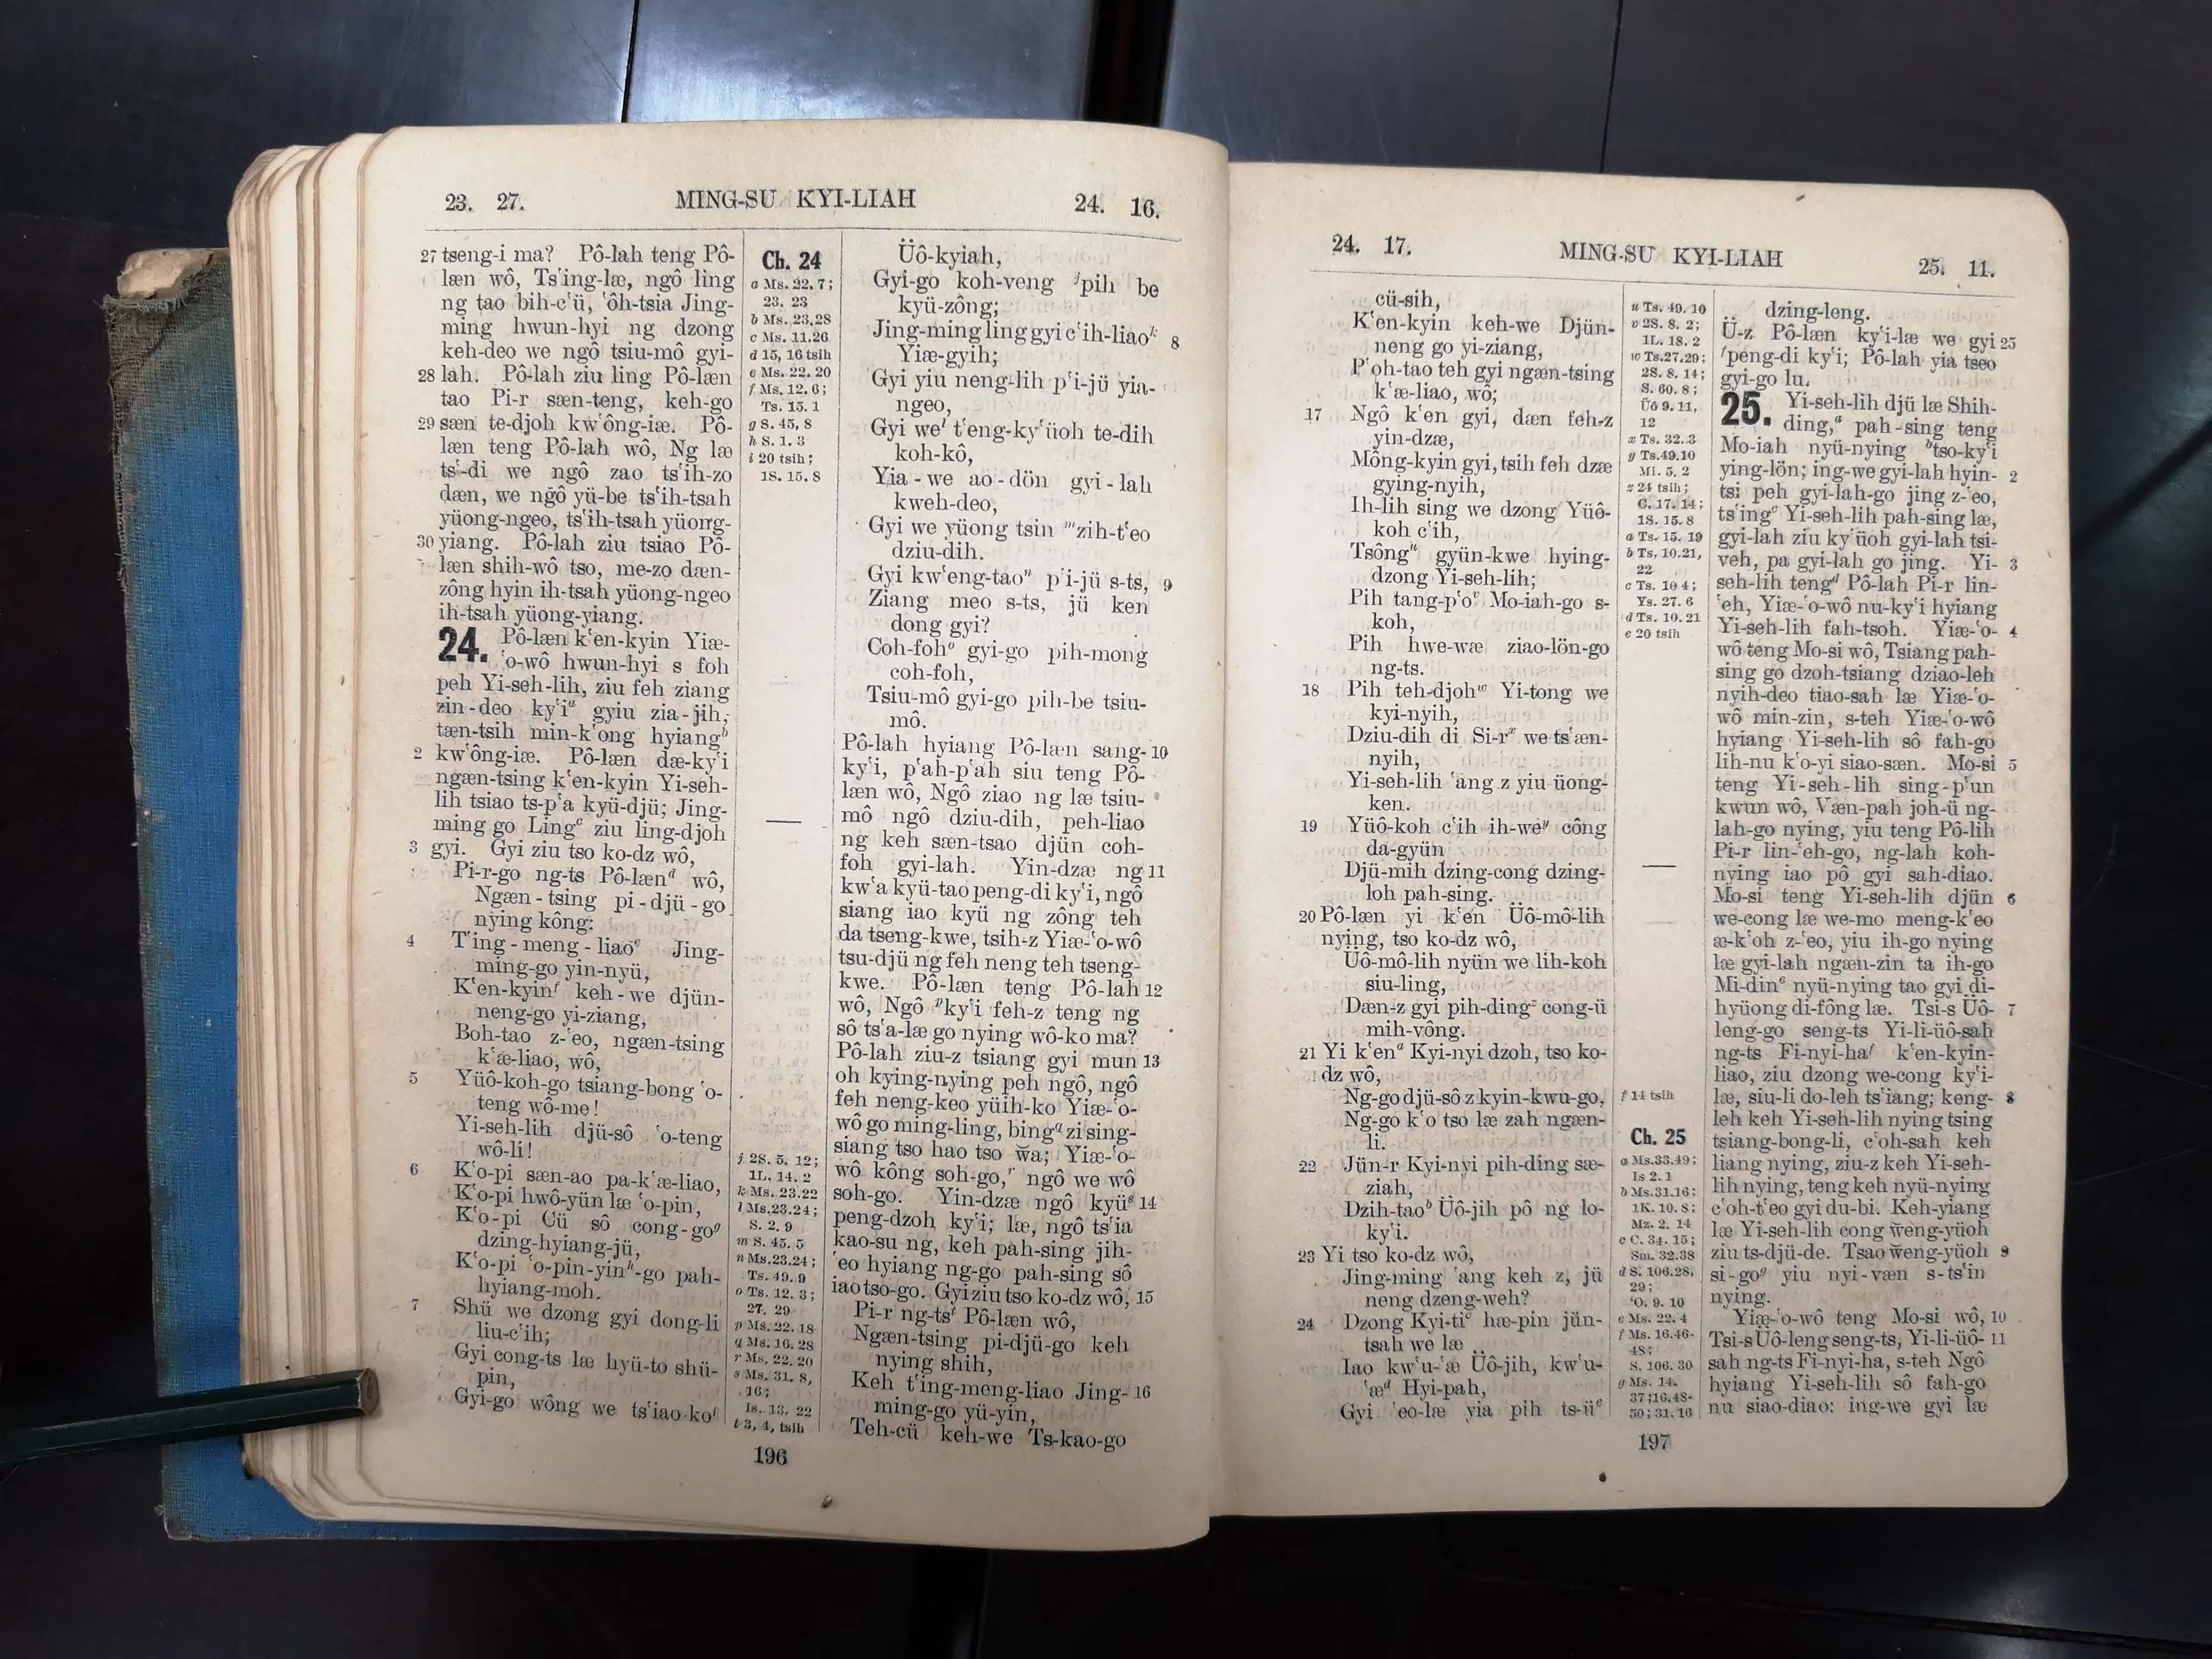 23. 27. MING-SU KYI-LIAH 24. 16.
27 tseng-i ma? Pô-lah teng Pô-
læn wô, Tsʻing-læ, ngô ling
ng tao bih-cʻü, ʻôh-tsia Jing-
ming hwun-hyi ng dzong
keh-deo we ngô tsiu-mô gyi-
28 lah. Pô-lah ziu ling Pô-læn
tao Pi-r sæn-teng, keh-go
29 sæn te-djoh kwʻông-iæ. Pô-
læn teng Pô-lah wô, Ng læ
tsʻ-di we ngô zao tsʻih-zo
dæn, we ngô yü-be tsʻih-tsah
yüong-ngeo, tsʻih-tsah yüong-
30 yiang. Pô-lah ziu tsiao Pô-
læn shih-wô tso, me-zo dæn-
zông hyin ih-tsah yüong-ngeo
ih-tsah yüong-yiang.
24. Pô-læn kʻen-kyin Yiæ-
ʻo-wô hwun-hyi s foh
peh Yi-seh-lih, ziu feh ziang
zin-deo kyʻiᵃ gyiu zia-jih,
tæn-tsih min-kʻong hyiangᵇ
2 kwʻông-iæ. Pô-læn dæ-kyʻi
ngæn-tsing kʻen-kyin Yi-seh-
lih tsiao ts-pʻa kyü-djü; Jing-
ming go Lingᶜ ziu ling-djoh
3 gyi. Gyi ziu tso ko-dz wô,
Pi-r-go ng-ts Pô-lænᵈ wô,
Ngæn-tsing pi-djü-go
nying kông:
4 Tʻing-meng-liaoᵉ Jing-
ming-go yin-nyü,
Kʻen-kyinᶠ keh-we djün-
neng-go yi-ziang,
Boh-tao z-ʻeo, ngæn-tsing
kʻæ-liao, wô,
5 Yüô-koh-go tsiang-bong ʻo-
teng wô-me!
Yi-seh-lih djü-sô ʻo-teng
wô-li!
6 Kʻo-pi sæn-ao pa-kʻæ-liao,
Kʻo-pi hwô-yün læ ʻo-pin,
Kʻo-pi Cü sô cong-goᵍ
dzing-hyiang-jü,
Kʻo-pi ʻo-pin-yinʰ-go pah-
hyiang-moh.
7 Shü we dzong gyi dong-li
liu-cʻih;
Gyi cong-ts læ hyü-to shü-
pin,
Gyi-go wông we tsʻiao-koⁱ
Ch. 24
a Ms. 22. 7;
23. 23
b Ms. 23.28
c Ms. 11.26
d 15, 16 tsih
e Ms. 22. 20
f Ms. 12. 6;
Ts. 15. 1
g S. 45, 8
h S. 1. 3
i 20 tsih;
1S. 15. 8
j 2S. 5. 12;
1L. 14. 2
k Ms. 23.22
l Ms.23.24;
S. 2. 9
m S. 45. 5
n Ms.23.24;
Ts. 49. 9
o Ts. 12. 3;
27. 29
p Ms. 22. 18
q Ms. 16. 28
r Ms. 22. 20
s Ms. 31. 8,
16;
Is. 13. 22
t 3, 4, tsih
Üô-kyiah,
Gyi-go koh-veng ʲpih be
kyü-zông;
Jing-ming ling gyi cʻih-liaoᵏ 8
Yiæ-gyih;
Gyi yiu neng-lih pʻi-jü yia-
ngeo,
Gyi weˡ tʻeng-kyʻüoh te-dih
koh-kô,
Yia-we ao-dön gyi-lah
kweh-deo,
Gyi we yüong tsin ᵐzih-tʻeo
dziu-dih.
Gyi kwʻeng-taoⁿ pʻi-jü s-ts, 9
Ziang meo s-ts, jü ken
dong gyi?
Coh-fohᵒ gyi-go pih-mong
coh-foh,
Tsiu-mô gyi-go pih-be tsiu-
mô.
Pô-lah hyiang Pô-læn sang- 10
kyʻi, pʻah-pʻah siu teng Pô-
læn wô, Ngô ziao ng læ tsiu-
mô ngô dziu-dih, peh-liao
ng keh sæn-tsao djün coh-
foh gyi-lah. Yin-dzæ ng 11
kwʻa kyü-tao peng-di kyʻi, ngô
siang iao kyü ng zông teh
da tseng-kwe, tsih-z Yiæ-ʻo-wô
tsu-djü ng feh neng teh tseng-
kwe. Pô-læn teng Pô-lah 12
wô, Ngô ᵖkyʻi feh-z teng ng
sô tsʻa-læ go nying wô-ko ma?
Pô-lah ziu-z tsiang gyi mun 13
oh kying-nying peh ngô, ngô
feh neng-keo yüih-ko Yiæ-ʻo-
wô go ming-ling, bing ᵠ zi sing-
siang tso hao tso w̌a; Yiæ-ʻo-
wô kông soh-go,ʳ ngô we wô
soh-go. Yin-dzæ ngô kyüˢ 14
peng-dzoh kyʻi; læ, ngô tsʻia
kao-su ng, keh pah-sing jih-
ʻeo hyiang ng-go pah-sing sô
iao tso-go. Gyi ziu tso ko-dz wô, 15
Pi-r ng-tsᵗ Pô-læn wô,
Ngæn-tsing pi-djü-go keh
nying shih,
Keh tʻing-meng-liao Jing- 16
ming-go yü-yin,
Teh-cü keh-we Ts-kao-go
196
24. 17. MING-SU KYI-LIAH 25. 11.
cü-sih,
Kʻen-kyin keh-we Djün-
neng go yi-ziang,
Pʻoh-tao teh gyi ngæn-tsing
kʻæ-liao, wô;
17 Ngô kʻen gyi, dæn feh-z
yin-dzæ,
Mông-kyin gyi, tsih feh dzæ
gying-nyih,
Ih-lih sing we dzong Yüô-
koh cʻih,
Tsôngᵘ gyün-kwe hying-
dzong Yi-seh-lih;
Pih tang-pʻoᵛ Mo-iah-go s-
koh,
Pih hwe-wæ ziao-lön-go
ng-ts.
18 Pih teh-djohʷ Yi-tong we
kyi-nyih,
Dziu-dih di Si-rˣ we tsʻæn-
nyih,
Yi-seh-lih ʻang z yiu üong-
ken.
19 Yüô-koh cʻih ih-weʸ công
da-gyün
Djü-mih dzing-cong dzing-
loh pah-sing.
20 Pô-læn yi kʻen Üô-mô-lih
nying, tso ko-dz wô,
Üô-mô-lih nyün we lih-koh
siu-ling,
Dæn-z gyi pih-dingᶻ cong-ü
mih-vông.
21 Yi kʻenᵃ Kyi-nyi dzoh, tso ko-
dz wô,
Ng-go djü-sô z kyin-kwu-go,
Ng-go kʻo tso læ zah ngæn-
li.
22 Jün-r Kyi-nyi pih-ding sæ-
ziah,
Dzih-taoᵇ Üô-jih pô ng lo-
kyʻi.
23 Yi tso ko-dz wô,
Jing-ming ʻang keh z, jü
neng dzeng-weh?
24 Dzong Kyi-tiᶜ hæ-pin jün-
tsah we læ
Iao kwʻu-ʻæ Üô-jih, kwʻu-
ʻæᵈ Hyi-pah,
Gyi ʻeo-læ yia pih ts-üᵉ
u Ts. 49. 10
v 2S. 8. 2;
1L. 18. 2
w Ts.27.29;
2S. 8. 14;
S. 60. 8;
Üô 9. 11,
12
x Ts. 32. 3
y Ts.49.10
Mi. 5. 2
z 24 tsih;
C. 17. 14;
1S. 15. 8
a Ts. 15. 19
b Ts. 10.21,
22
c Ts. 10 4;
Ys. 27. 6
d Ts. 10. 21
e 20 tsih
f 14 tsih
Ch. 25
a Ms.33.49;
Is 2. 1
b Ms.31.16;
1K. 10. 8;
Mz. 2. 14
c C. 34. 15;
Sm. 32.38
d S. 106.28,
29;
ʻO. 9. 10
e Ms. 22. 4
f Ms. 16.46-
48;
S. 106. 30
g Ms. 14.
37;16.48-
50; 31. 16
dzing-leng.
Ü-z Pô-læn kyʻi-læ we gyi 25
ᶠpeng-di kyʻi; Pô-lah yia tseo
gyi-go lu.
25. Yi-seh-lih djü læ Shih-
ding,ᵃ pah-sing teng
Mo-iah nyü-nying ᵇtso-kyʻi
ying-lön; ing-we gyi-lah hyin- 2
tsi peh gyi-lah-go jing z-ʻeo,
tsʻingᶜ Yi-seh-lih pah-sing læ,
gyi-lah ziu kyʻüoh gyi-lah tsi-
veh, pa gyi-lah go jing. Yi- 3
seh-lih tengᵈ Pô-lah Pi-r lin-
ʻeh, Yiæ-ʻo-wô nu-kyʻi hyiang
Yi-seh-lih fah-tsoh. Yiæ-ʻo- 4
wô teng Mo-si wô, Tsiang pah-
sing go dzoh-tsiang dziao-leh
nyih-deo tiao-sah læ Yiæ-ʻo-
wô min-zin, s-teh Yiæ-ʻo-wô
hyiang Yi-seh-lih sô fah-go
lih-nu kʻo-yi siao-sæn. Mo-si 5
teng Yi-seh-lih sing-pʻun
kwun wô, Væn-pah joh-ü ng-
lah-go nying, yiu teng Pô-lih
Pi-r lin-ʻeh-go, ng-lah koh-
nying iao pô gyi sah-diao.
Mo-si teng Yi-seh-lih djün 6
we-cong læ we-mo meng-kʻeo
æ-kʻoh z-ʻeo, yiu ih-go nying
læ gyi-lah ngæn-zin ta ih-go
Mi-dinᵉ nyü-nying tao gyi di-
hyüong di-fông læ. Tsi-s Üô- 7
leng-go seng-ts Yi-li-üô-sah
ng-ts Fi-nyi-haᶠ kʻen-kyin-
liao, ziu dzong we-cong kyʻi-
læ, siu-li do-leh tsʻiang; keng- 8
leh keh Yi-seh-lih nying tsing
tsiang-bong-li, cʻoh-sah keh
liang nying, ziu-z keh Yi-seh-
lih nying, teng keh nyü-nying
cʻoh-tʻeo gyi du-bi. Keh-yiang
læ Yi-seh-lih cong w̌eng-yüoh
ziu ts-djü-de. Tsao w̌eng-yüoh 9
si-goᵍ yiu nyi-væn s-tsʻin
nying.
Yiæ-ʻo-wô teng Mo-si wô, 10
Tsi-s Üô-leng seng-ts, Yi-li-üô- 11
sah ng-ts Fi-nyi-ha, s-teh Ngô
hyiang Yi-seh-lih sô fah-go
nu siao-diao: ing-we gyi læ
197